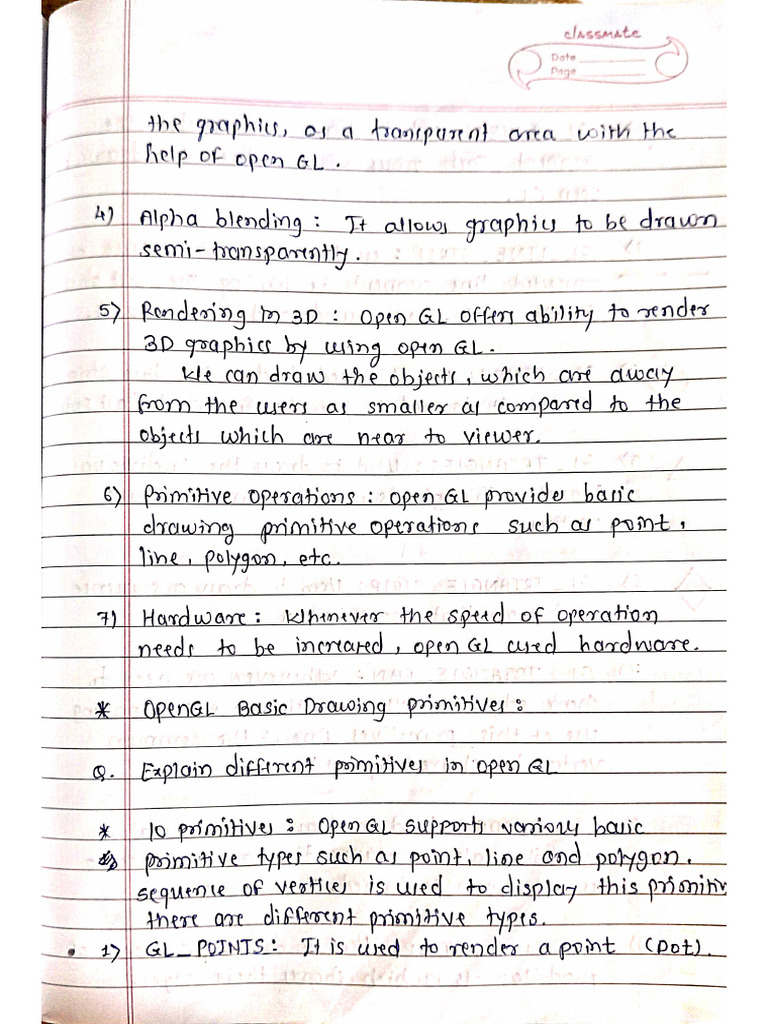 classmate
Date
Page
the graphics, as a transparent area with the
help of open GL.
4) Alpha blending : It allows graphics to be drawn
semi-transparently.
5) Rendering in 3D : Open GL offers ability to render
3D graphics by using open GL.
We can draw the objects, which are away
from the users as smaller as compared to the
objects which are near to viewer.
6) Primitive operations : open GL provide basic
drawing primitive operations such as point,
line, polygon, etc.
7) Hardware : Whenever the speed of operation
needs to be increased, open GL used hardware.
* OpenGL Basic Drawing primitives :
Q. Explain different primitives in open GL
* 10 primitives : OpenGL supports various basic
primitive types such as point, line and polygon.
sequence of vertices is used to display this primitiv
there are different primitive types.
• 1) GL_POINTS : It is used to render a point (Dot).